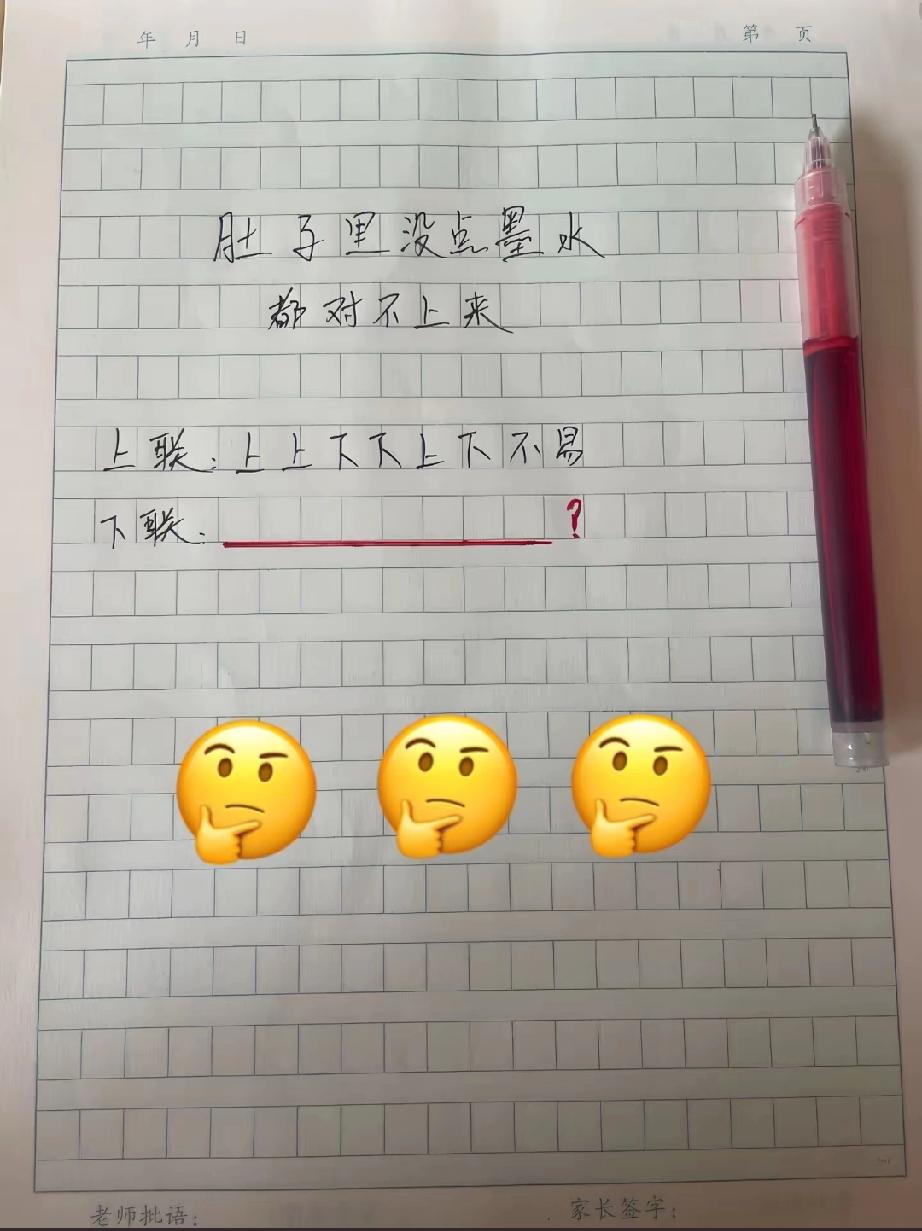 年 月 日 第 页
肚子里没点墨水
都对不上来
上联:上上下下上下不易
下联: ?
老师批语: 家长签字: